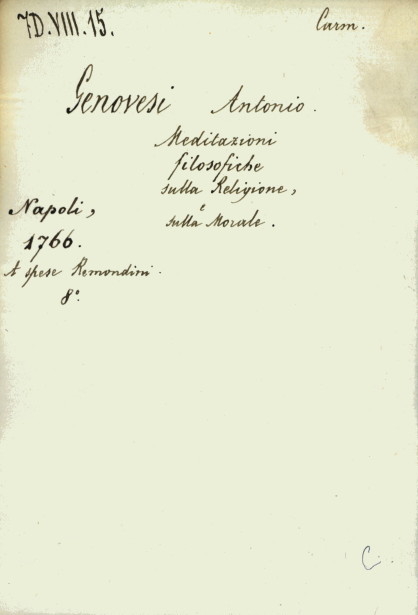 7D.VIII.15.
Carm.
Genovesi Antonio.
Meditazioni
filosofiche
sulla Religione,
e
sulla Morale.
Napoli,
1766.
A spese Remondini.
8°.
C.